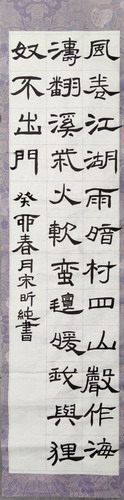 風卷江湖雨暗村四山聲作海
濤翻溪柴火軟蠻氈暖我與狸
奴不出門
癸卯春月宋昕純書